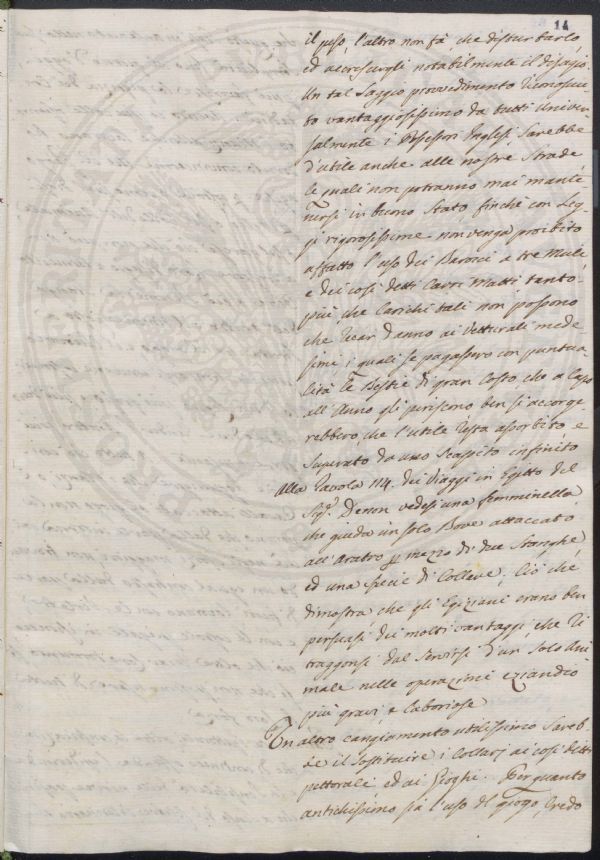 14
il peso, l'altro non fà, che disturbarlo,
ed accrescergli notabilmente il disagio.
Un tal Saggio provvedimento riconosciu-
to vantaggiosissimo da tutti univer-
salmente i Inglesi, Sarebbe
d'utile anche alle nostre Strade,
le quali non potranno mai mante-
nersi in buono Stato, finchè con Leg-
gi rigorosissime non venga proibito
affatto l'uso dei Barocci a tre Mule
e dei così detti Carri Matti tanto
più, che Carichi tali non possono
che recar danno ai Vetturali mede
simi, i quali se pagassero con puntua-
lità le Bestie di gran Costo, che a Capo
all'Anno gli periscono ben si accorge
rebbero, che l'utile resta assorbito, e
Superato da uno Scapito infinito
Alla Tavola 114. dei Viaggi in Egitto del
Sig.r Denon vedesi una femminella
che guida un solo Bove attaccato
all'Aratro p mezzo di due Stanghe,
ed una Specie di Collare. Ciò che
dimostra, che gli Egiziani erano ben
persuasi dei molti vantaggi, che ri
traggonsi dal Servirsi d'un Solo Ani
male nelle operazioni eziandio
più gravi, e laboriose
Un altro cangiamento utilissimo Sareb-
be il Sostituire i Collari ai così detti
pettorali ed ai Gioghi. Per quanto
antichissimo sia l'uso del giogo, credo